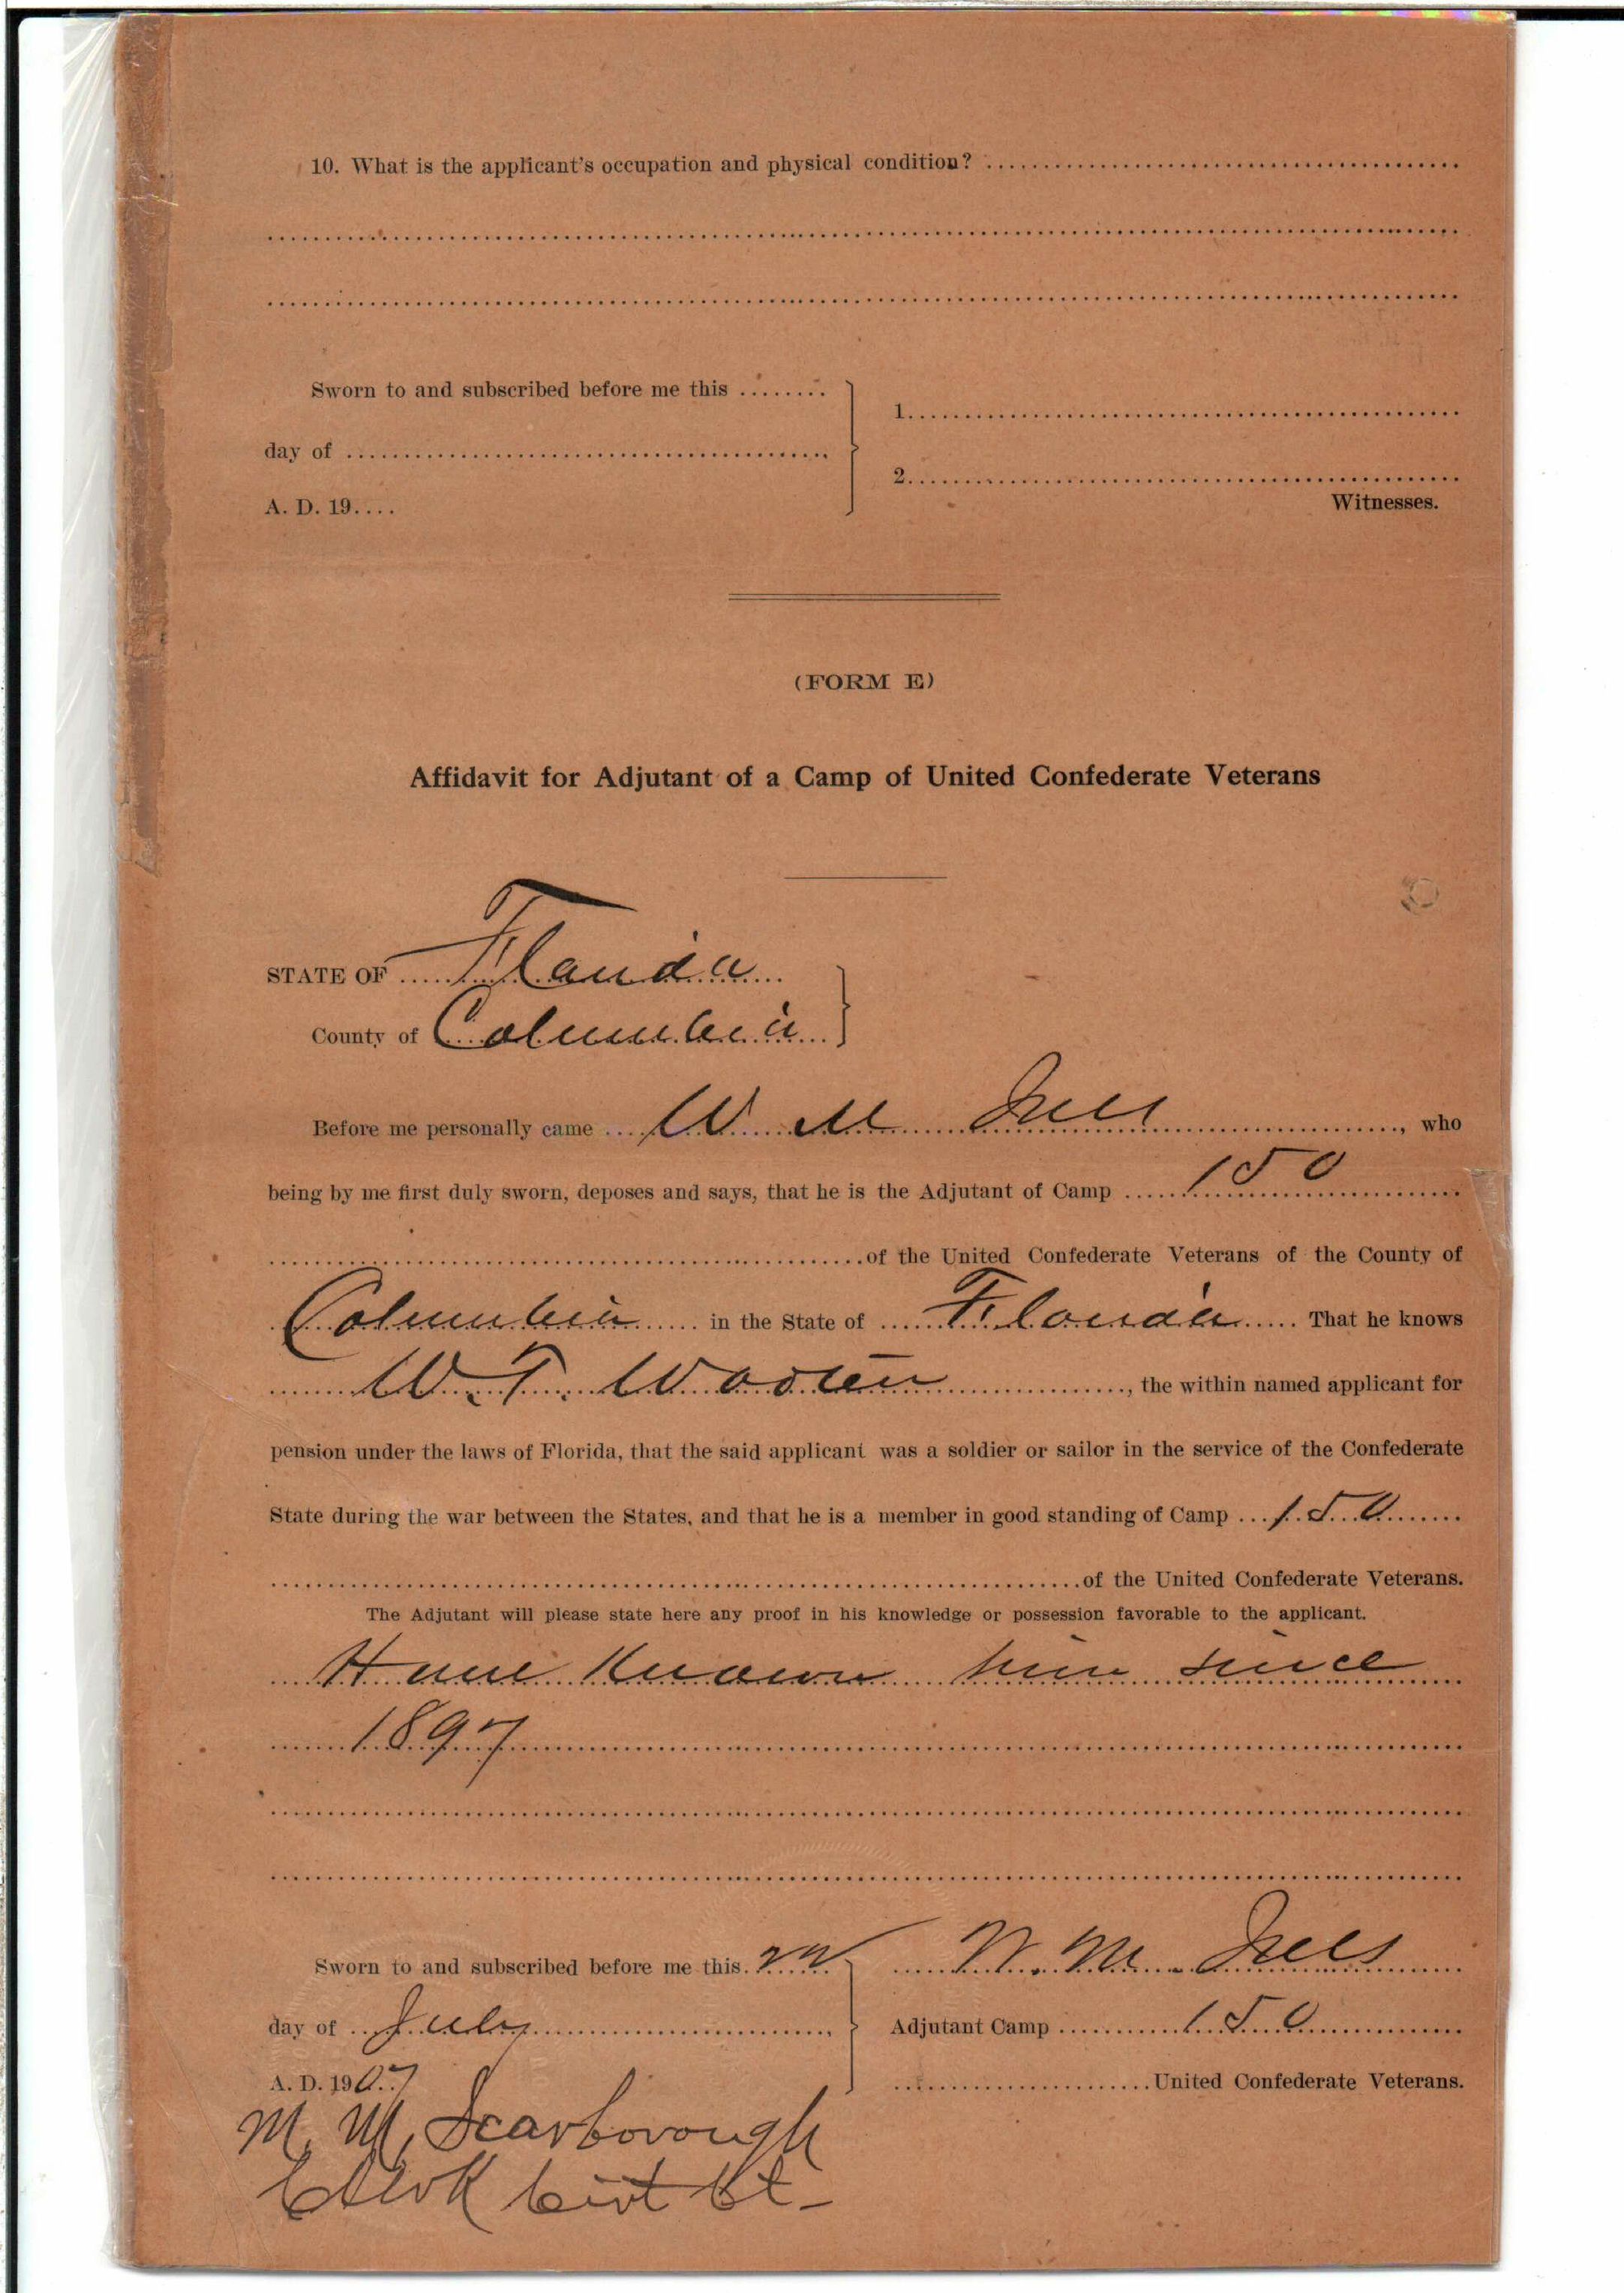 10. What is the applicant's occupation and physical condition?
Sworn to and subscribed before me this
1.
day of
2.
A. D. 19
Witnesses.
(FORM E)
Affidavit for Adjutant of a Camp of United Confederate Veterans
STATE OF Florida
County of Columbia
Before me personally came W M Ives, who
being by me first duly sworn, deposes and says, that he is the Adjutant of Camp 150
of the United Confederate Veterans of the County of
Columbia in the State of Florida That he knows
W. T. Wooten, the within named applicant for
pension under the laws of Florida, that the said applicant was a soldier or sailor in the service of the Confederate
State during the war between the States, and that he is a member in good standing of Camp 150
of the United Confederate Veterans.
The Adjutant will please state here any proof in his knowledge or possession favorable to the applicant.
Have Known him since
1897
Sworn to and subscribed before me this W. M. Ives
day of July Adjutant Camp 150
A. D. 1907 United Confederate Veterans.
M. M. Scarborough
Clerk Cirt Ct